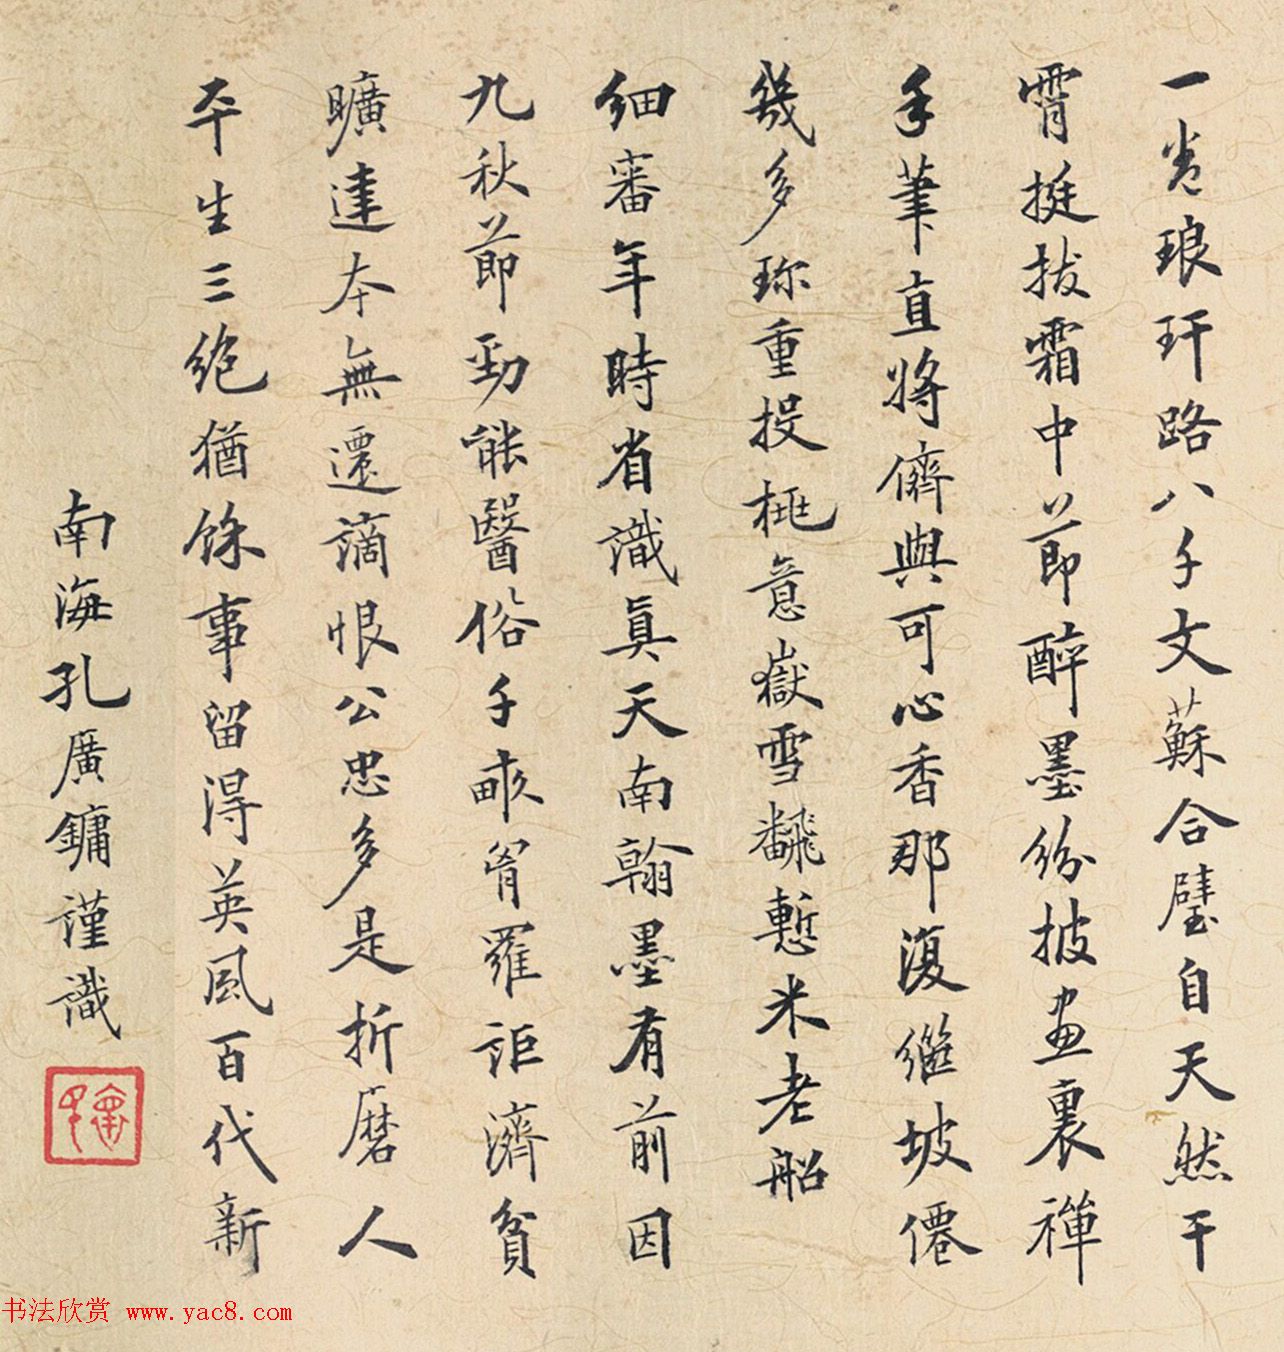 一卷琅玕路八千文蘇合璧自天然干
霄挺拔霜中節醉墨紛披畫裏禪
手筆直將儕與可心香那復繼坡僊
幾多珍重投桃意嶽雪飜慙米老船
細審年時省識真天南翰墨有前因
九秋節勁能醫俗千畝胷羅詎濟貧
曠達本無遷謫恨公忠多是折磨人
平生三絶猶餘事留得英風百代新
南海孔廣鏞謹識
书法欣赏 www.yac8.com